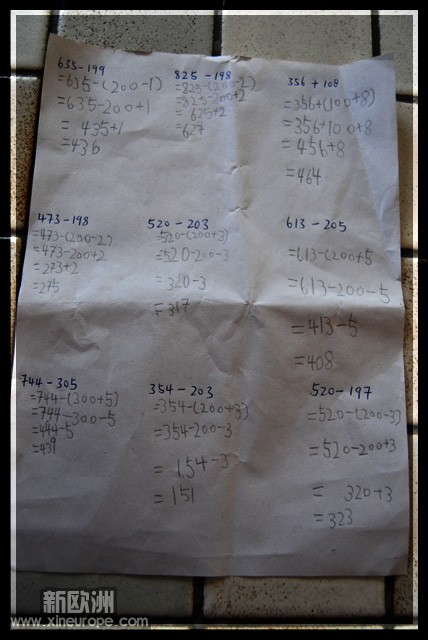 635-199
=635-(200-1)
=635-200+1
= 435+1
=436
825-198
=825-(200-2)
=825-200+2
= 625+2
=627
356+108
=356+(100+8)
=356+100+8
=456+8
=464
473-198
=473-(200-2)
=473-200+2
=273+2
=275
520-203
=520-(200+3)
=520-200-3
=320-3
=317
613-205
=613-(200+5
=613-200-5
=413-5
=408
744-305
=744-(300+5)
=744-300-5
=444-5
=439
354-203
=354-(200+3)
=354-200-3
= 154-3
= 151
520-197
=520-(200-3)
=520-200+3
= 320+3
=323
新欧洲
www.xineurope.com